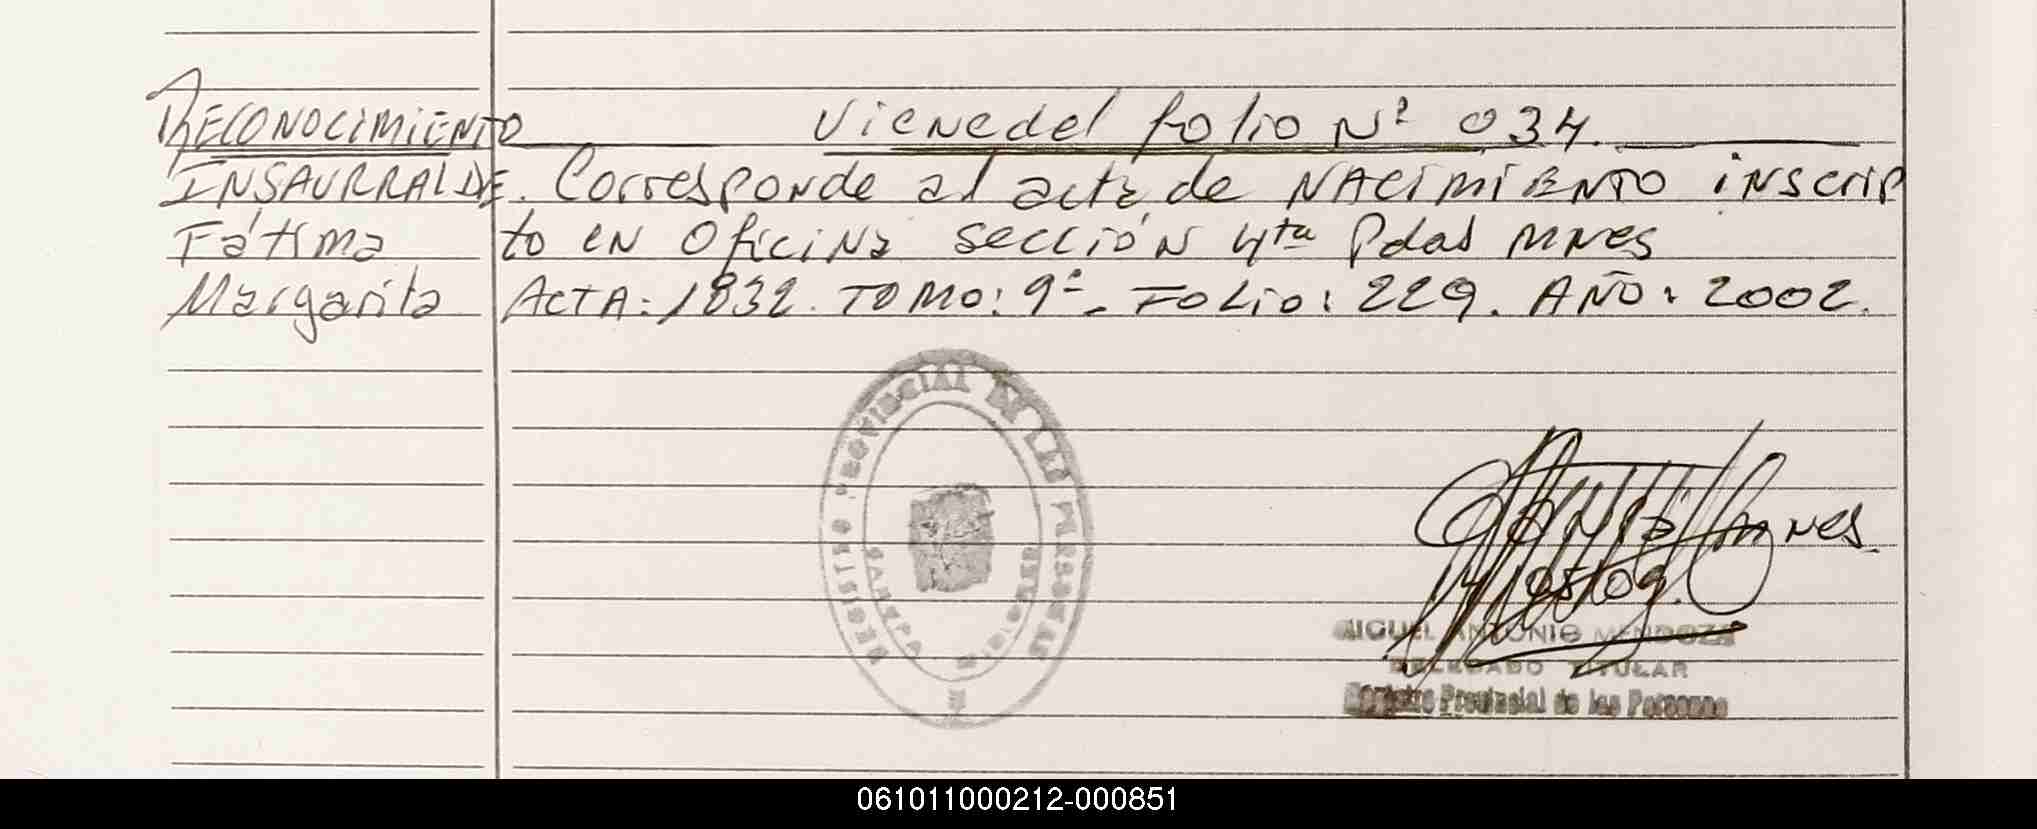 RECONOCIMIENTO
INSAURRALDE
Fátima
Margarita
Viene del folio Nº 034.
Corresponde al acta de NACIMIENTO inscrip
to en Oficina sección 4ta Pdas Mnes
ACTA: 1832. TOMO: 9º - FOLIO: 229. AÑO: 2002.
REGISTRO PROVINCIAL DE LAS PERSONAS
GARUPA
MISIONES
14/05/09.
MIGUEL ANTONIO MENDOZA
DELEGADO TITULAR
Registro Provincial de las Personas
061011000212-000851